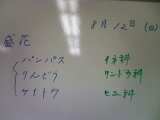 8月12日(日)
盛花
パンパス イネ科
りんどう リンドウ科
ケイトウ ヒユ科